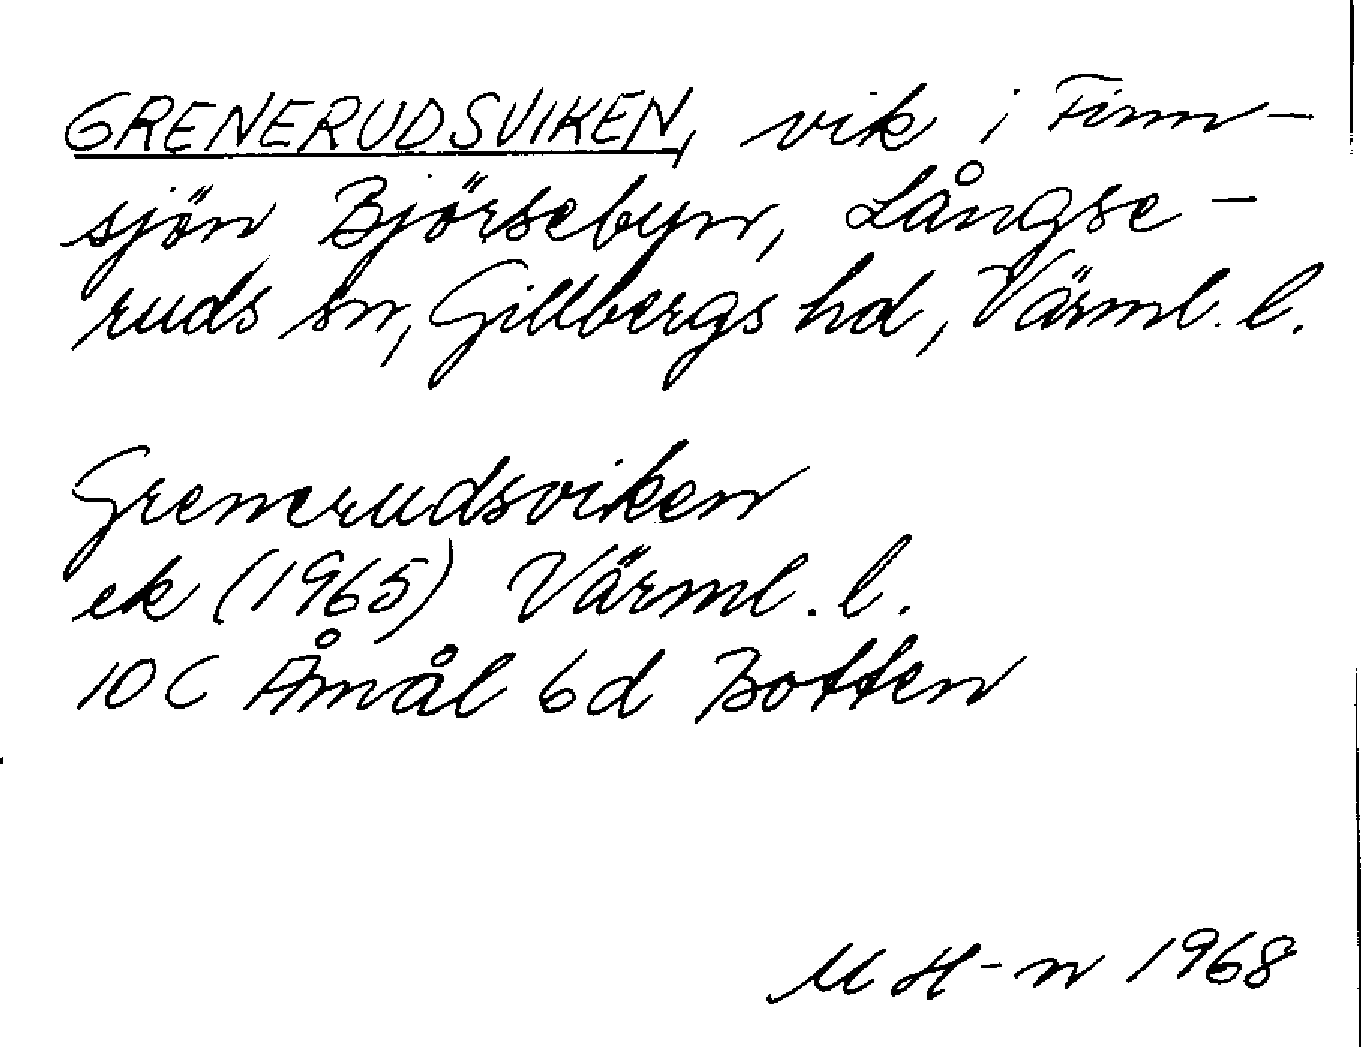 GRENERUDSVIKEN, vik i Finn-
sjön Björsebyn, Långse-
ruds sn, Gillbergs hd, Värml. l.
Grenerudsviken
ek (1965) Värml. l.
10 C Åmål 6d Botten
M H-n 1968